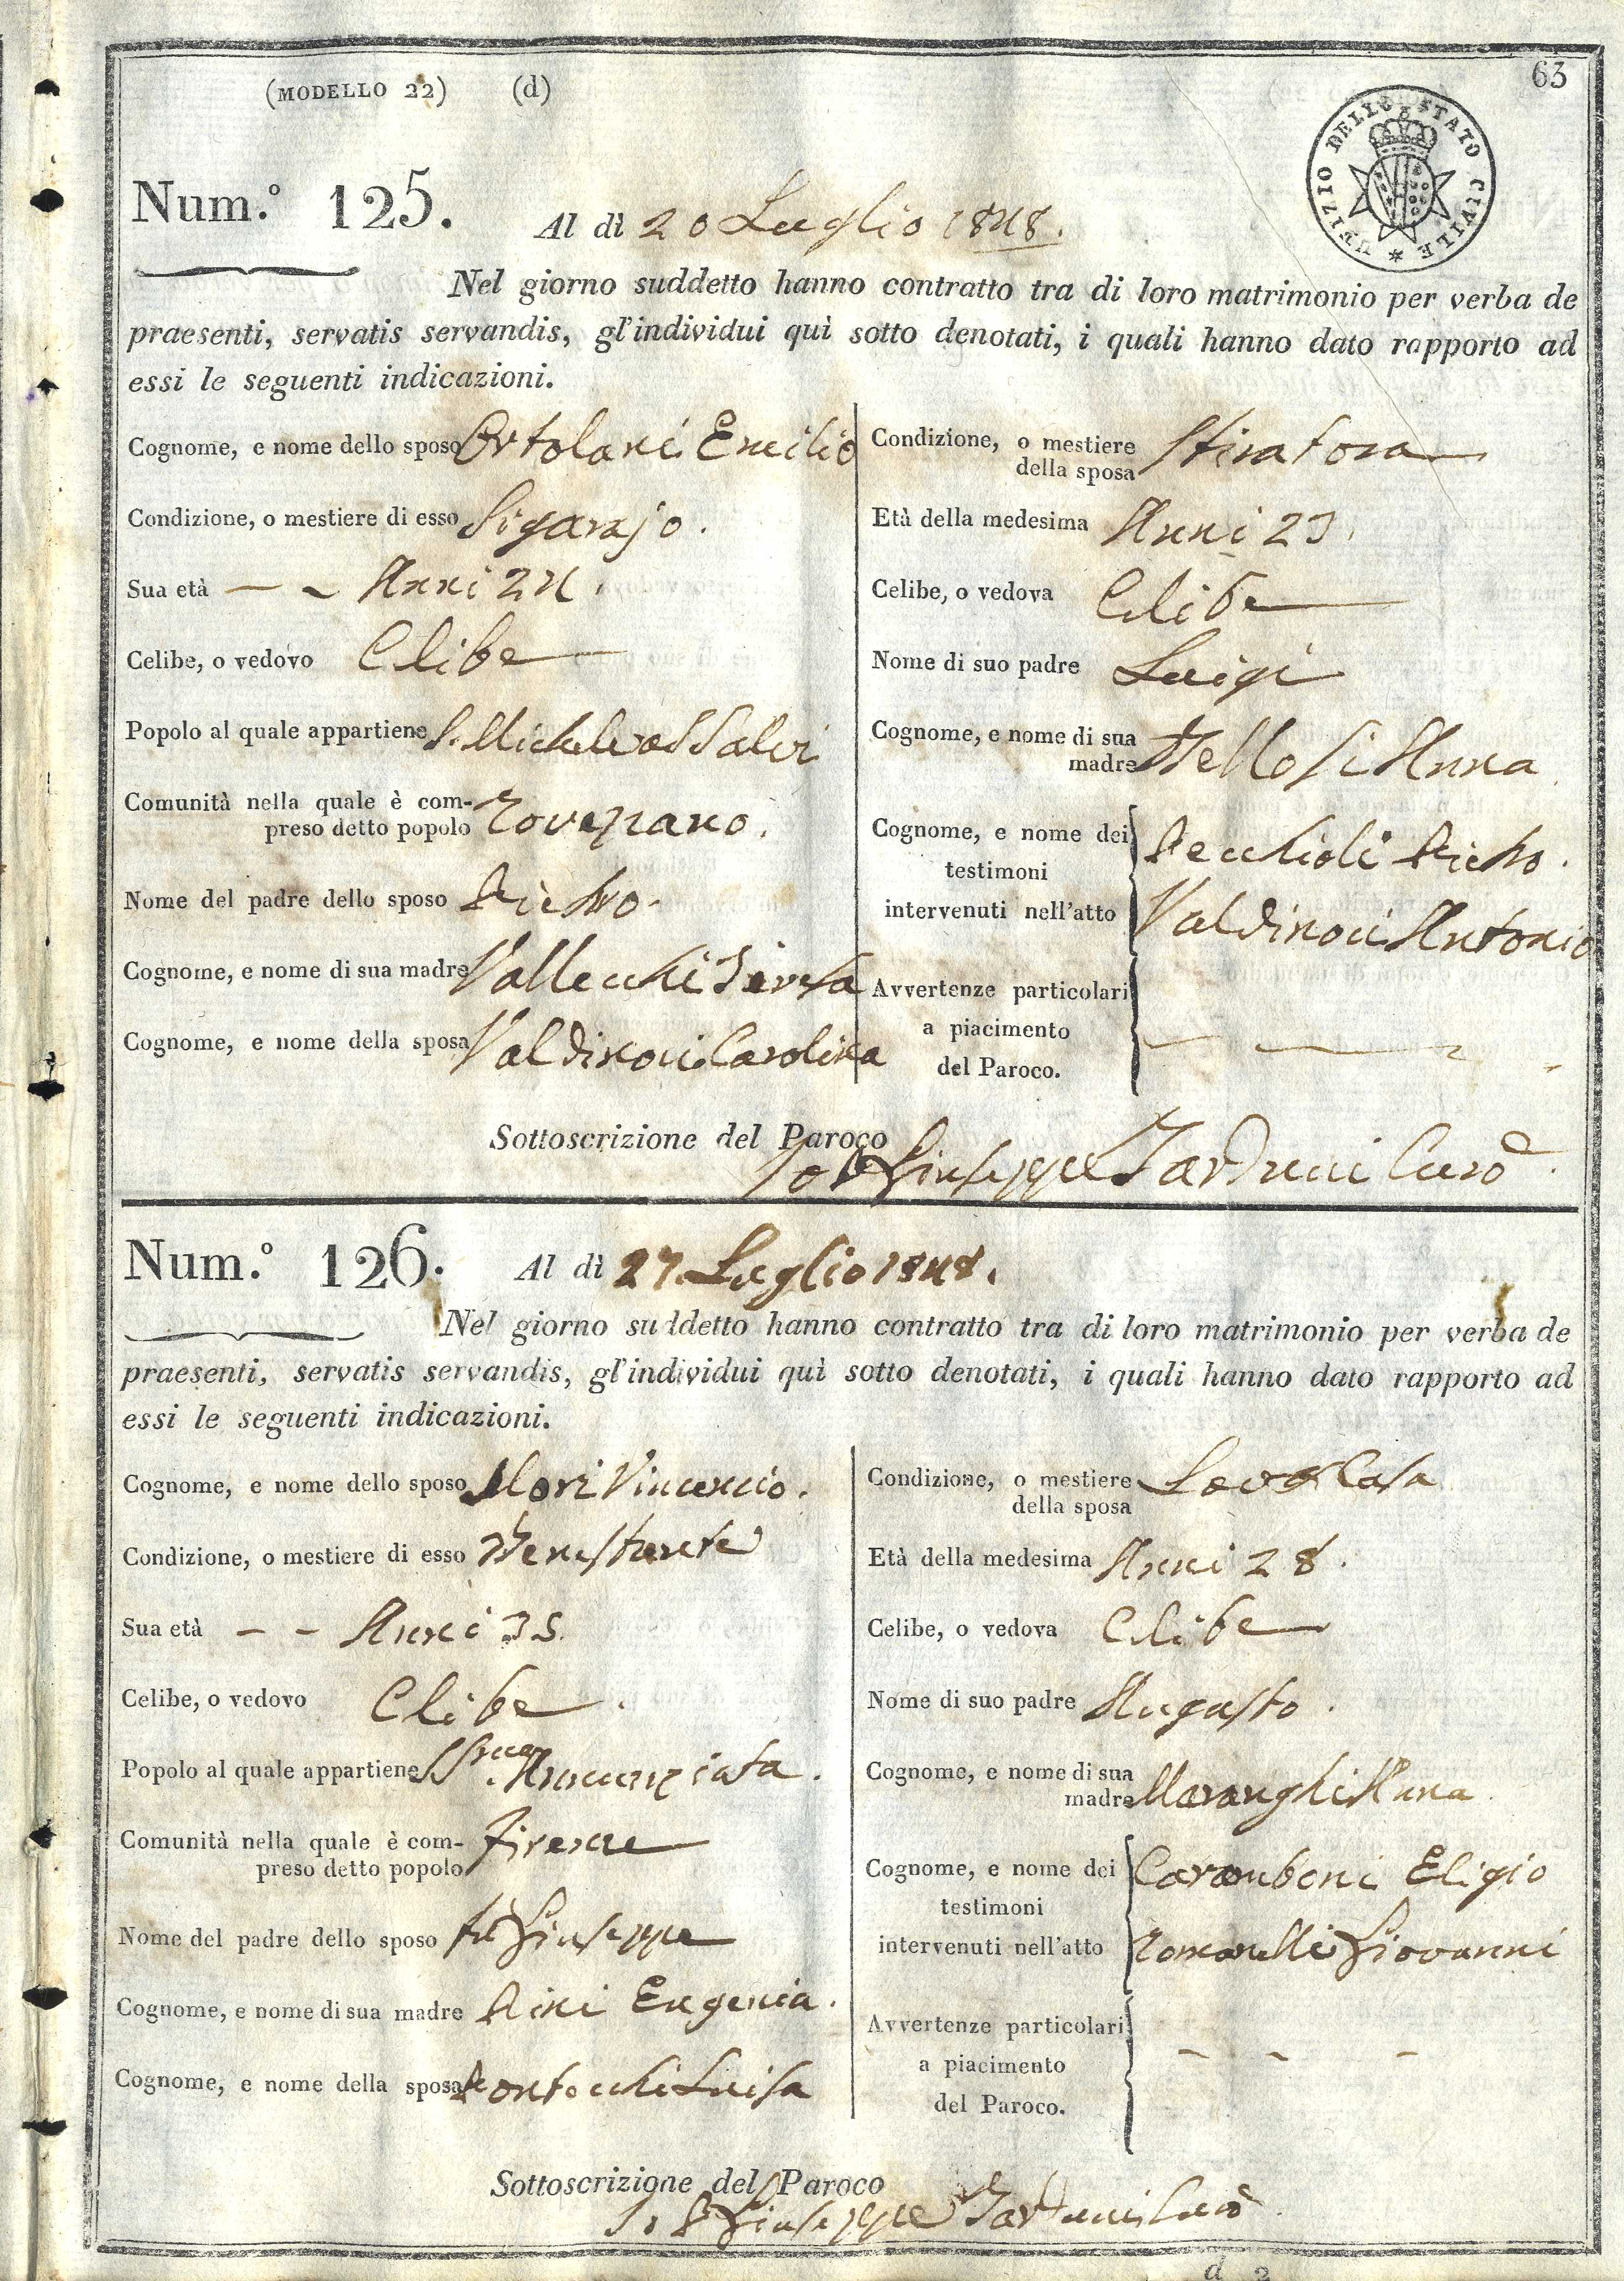 63
(MODELLO 22) (d)
UFIZIO DELLO STATO CIVILE
Num.º 125. Al dì 20 Luglio 1848.
Nel giorno suddetto hanno contratto tra di loro matrimonio per verba de
praesenti, servatis servandis, gl'individui quì sotto denotati, i quali hanno dato rapporto ad
essi le seguenti indicazioni.
Cognome, e nome dello sposo Ortolani Emilio
Condizione, o mestiere di esso Sigarajo.
Sua età Anni 24.
Celibe, o vedovo Celibe
Popolo al quale appartiene S. Michele a S Salvi
Comunità nella quale è com-
preso detto popolo Rovezzano.
Nome del padre dello sposo Pietro.
Cognome, e nome di sua madre Vallecchi Teresa
Cognome, e nome della sposa Valdinoci Carolina
Condizione, o mestiere
della sposa Stiratora
Età della medesima Anni 23.
Celibe, o vedova Celibe
Nome di suo padre Luigi
Cognome, e nome di sua
madre Bellosi Anna
Cognome, e nome dei
testimoni
intervenuti nell'atto
Pecchioli Pietro.
Valdinoci Antonio
Avvertenze particolari
a piacimento
del Paroco.
Sottoscrizione del Paroco
Io P Giuseppe Tarduci Curò
Num.º 126. Al dì 27 Luglio 1848.
Nel giorno suddetto hanno contratto tra di loro matrimonio per verba de
praesenti, servatis servandis, gl'individui quì sotto denotati, i quali hanno dato rapporto ad
essi le seguenti indicazioni.
Cognome, e nome dello sposo Mori Vincenzio.
Condizione, o mestiere di esso Benestante
Sua età Anni 35.
Celibe, o vedovo Celibe.
Popolo al quale appartiene SSma. Annunziata.
Comunità nella quale è com-
preso detto popolo Firenze
Nome del padre dello sposo fu Giuseppe
Cognome, e nome di sua madre Pini Eugenia.
Cognome, e nome della sposa Pontecchi Luisa
Condizione, o mestiere
della sposa Casa
Età della medesima Anni 28.
Celibe, o vedova Celibe
Nome di suo padre Augusto.
Cognome, e nome di sua
madre Maranghi Anna
Cognome, e nome dei
testimoni
intervenuti nell'atto
Caramboni Eligio
Romanelli Giovanni
Avvertenze particolari
a piacimento
del Paroco.
Sottoscrizione del Paroco
Io P Giuseppe Tarduci Curò
d 2